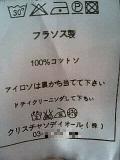 フラソス製
100%コットソ
アイロソは裏から当てて下さい
ドライクリーニングして下さい
クリスチャソディオール(株)
03-